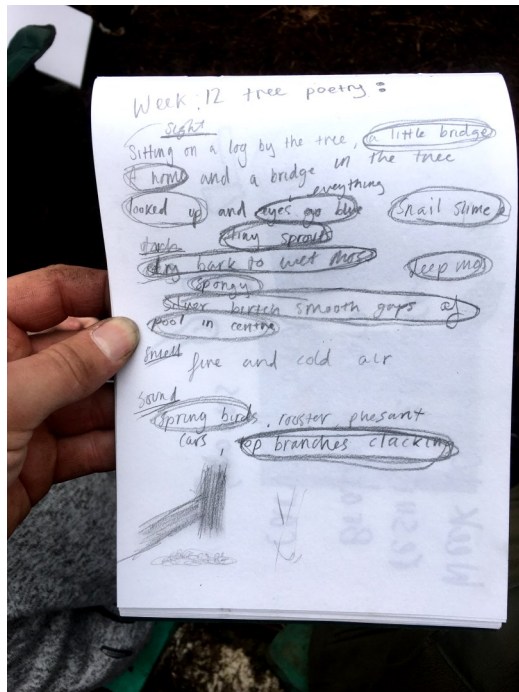 Week: 12 tree poetry:
Sight
Sitting on a log by the tree, a little bridge
A home and a bridge in the tree
everything
looked up and eyes go blue snail slime
tiny sprouts
touch
dry bark to wet mos deep mos
spongy
Silver birtch smooth gaps of
pool in centre
Smell fire and cold air
Sound
Spring birds, rooster phesant
cars, top branches clacking